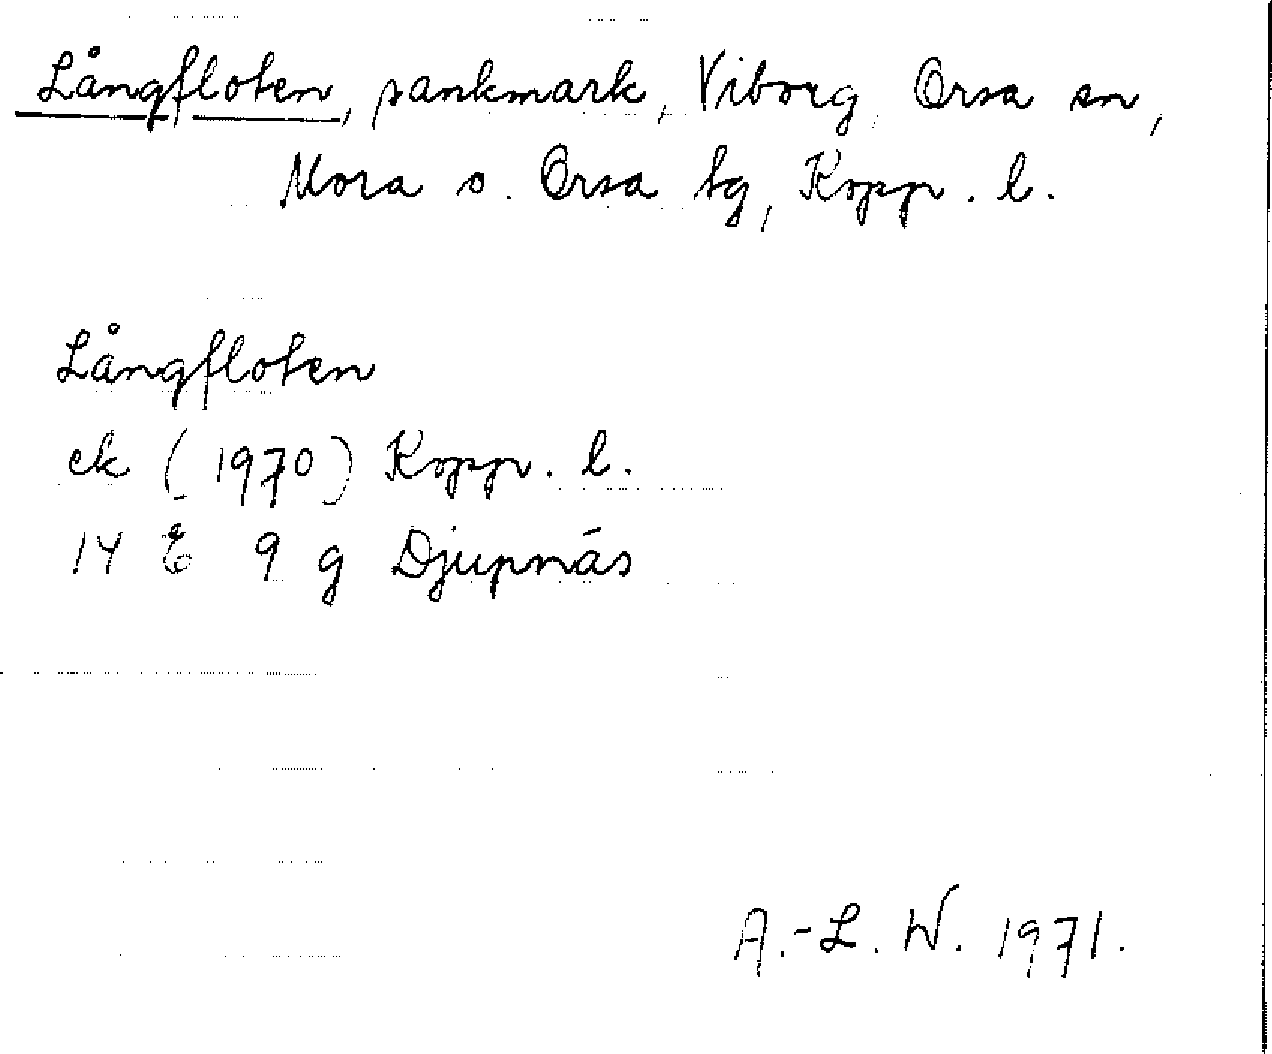 Långfloten, sankmark, Viborg, Orsa sn,
Mora o. Orsa tg, Kopp. l.
Långfloten
ek (1970) Kopp. l.
14 E 9 g Djupnäs
A.-L. W. 1971.